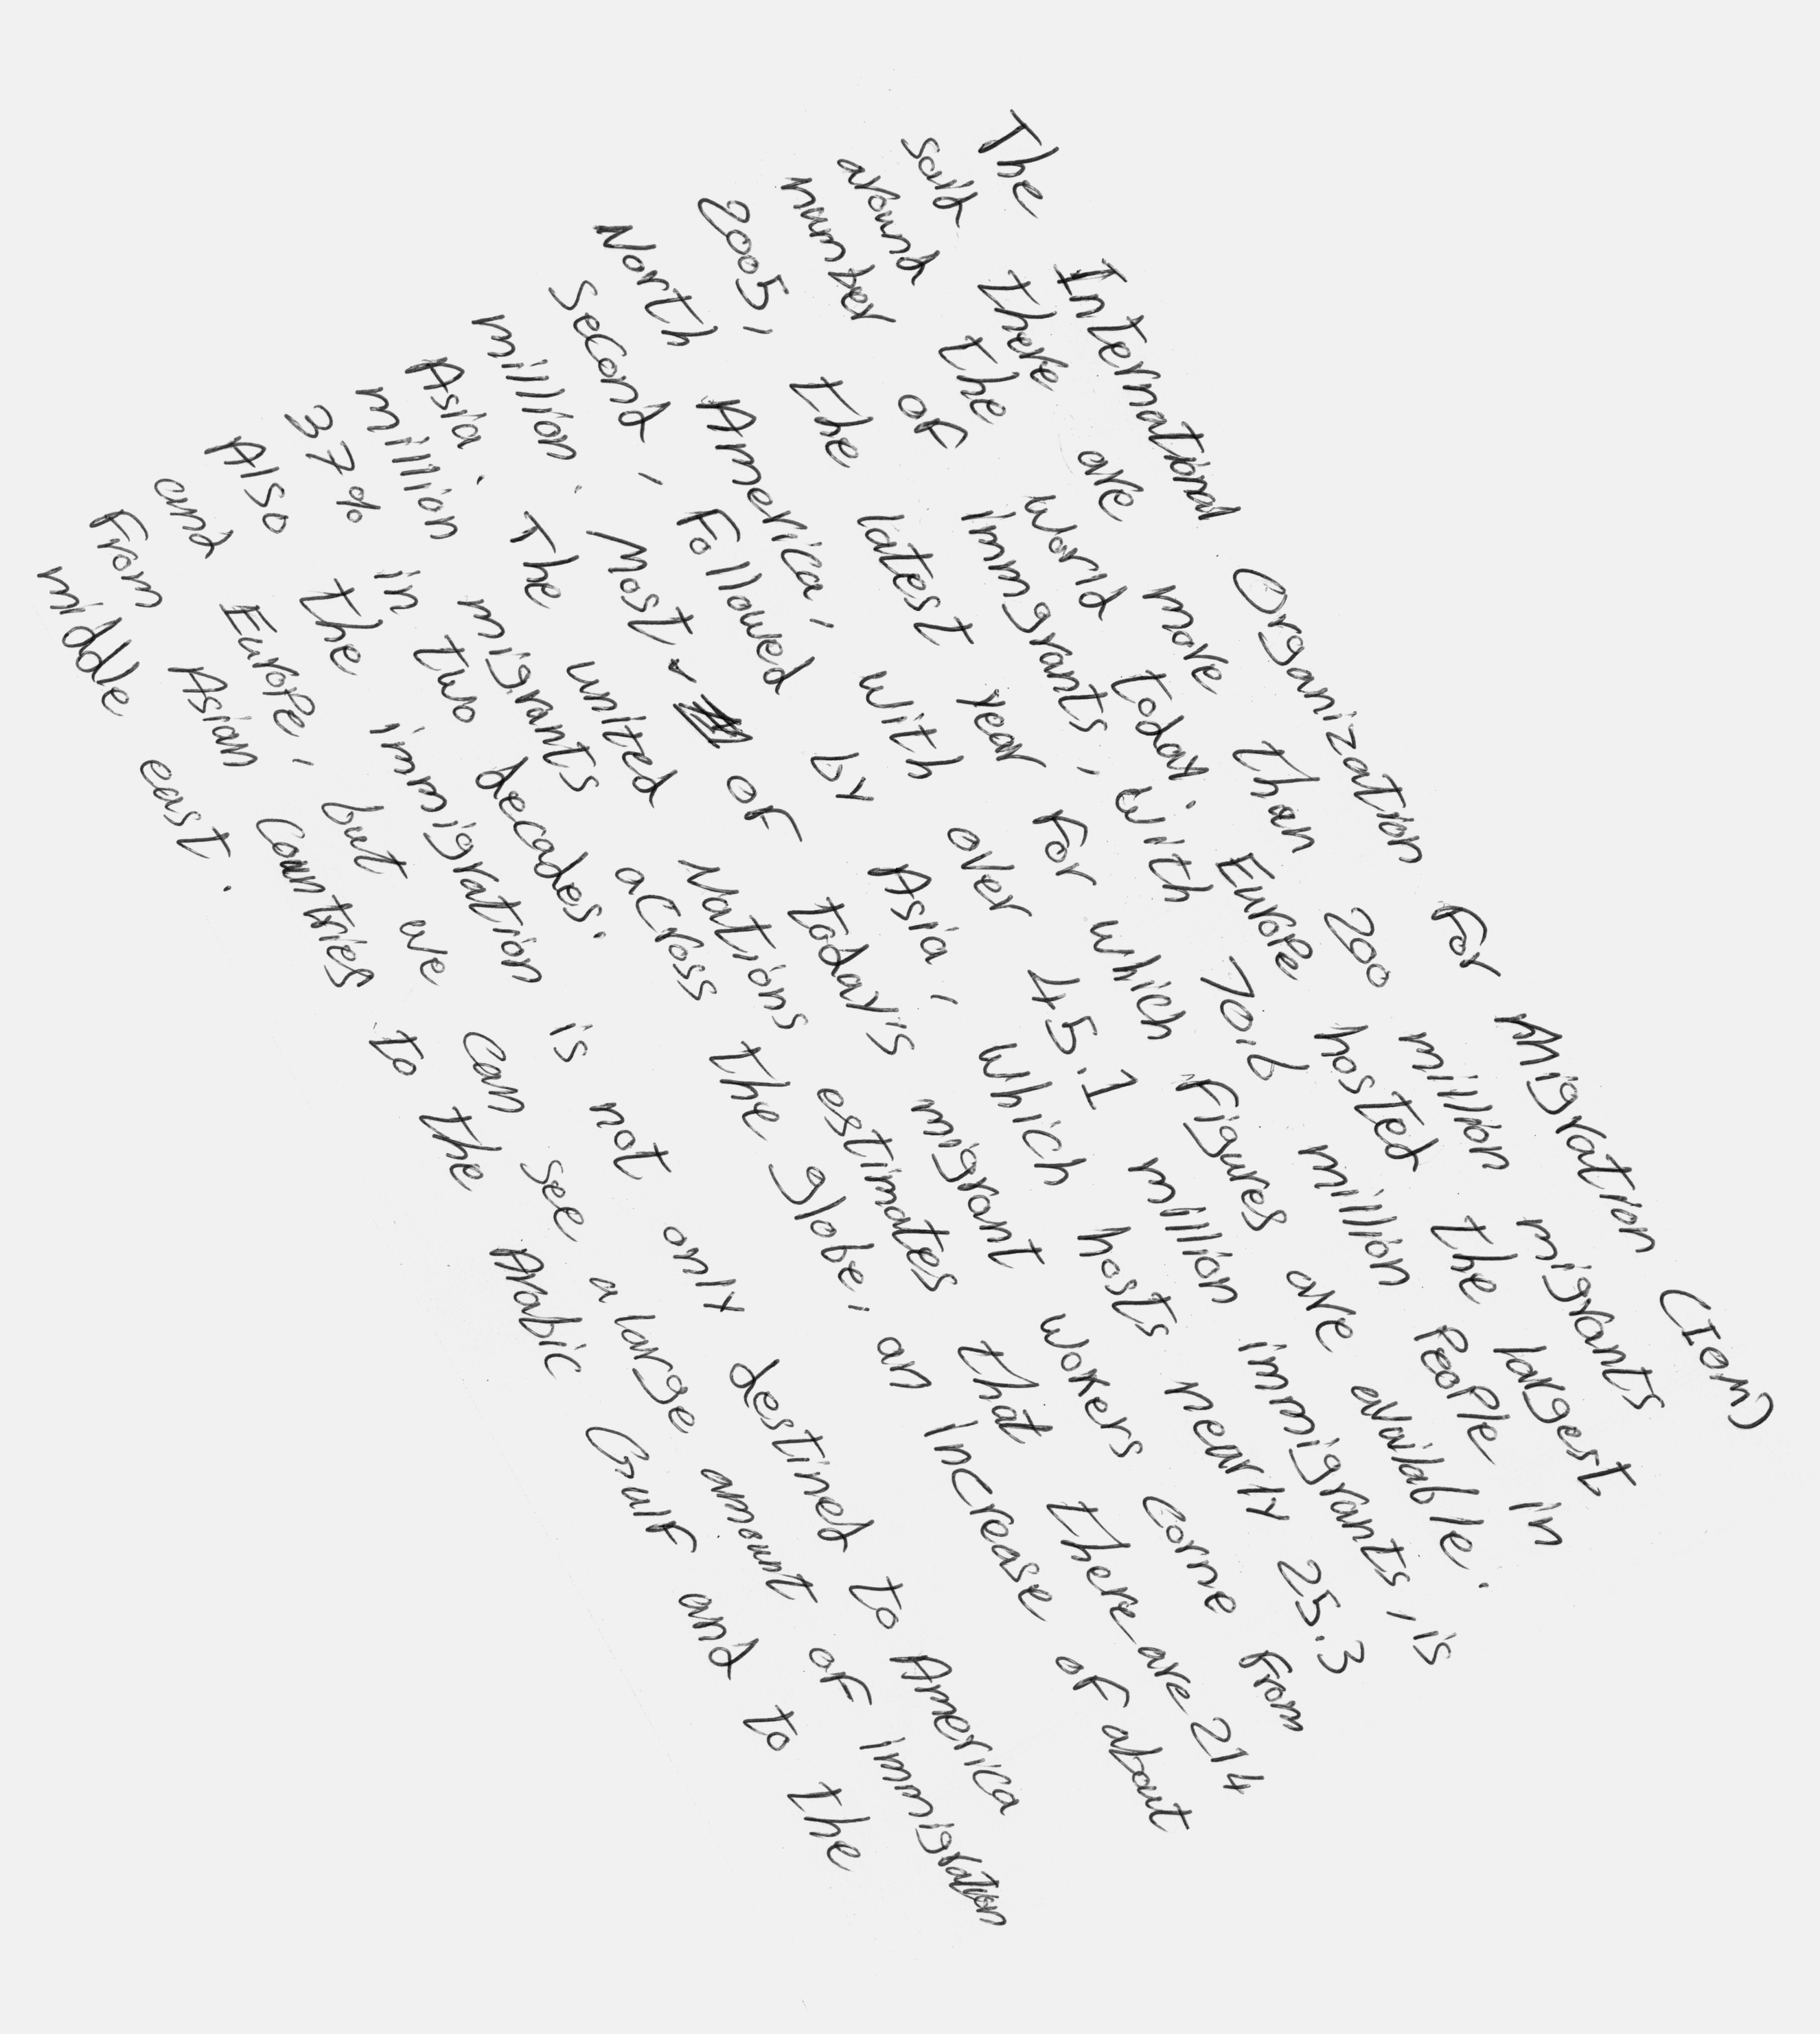 The International Organization For Migration (IOM)
said there are more than 200 million migrants
around the world today. Europe hosted the largest
number of immigrants, with 70.6 million People in
2005, the latest year For which Figures are available.
North America, with over 45.1 million immigrants, is
second, Followed by Asia, which hosts nearly 25.3
million. Most of today's migrant workers come From
Asia. The united Nations estimates that there are 214
million migrants across the globe, an increase of about
37% in two decades.
Also the immigration is not only destined to America
and Europe, but we can see a large amount of immigration
From Asian countries to the Arabic Gulf and to the
middle east.